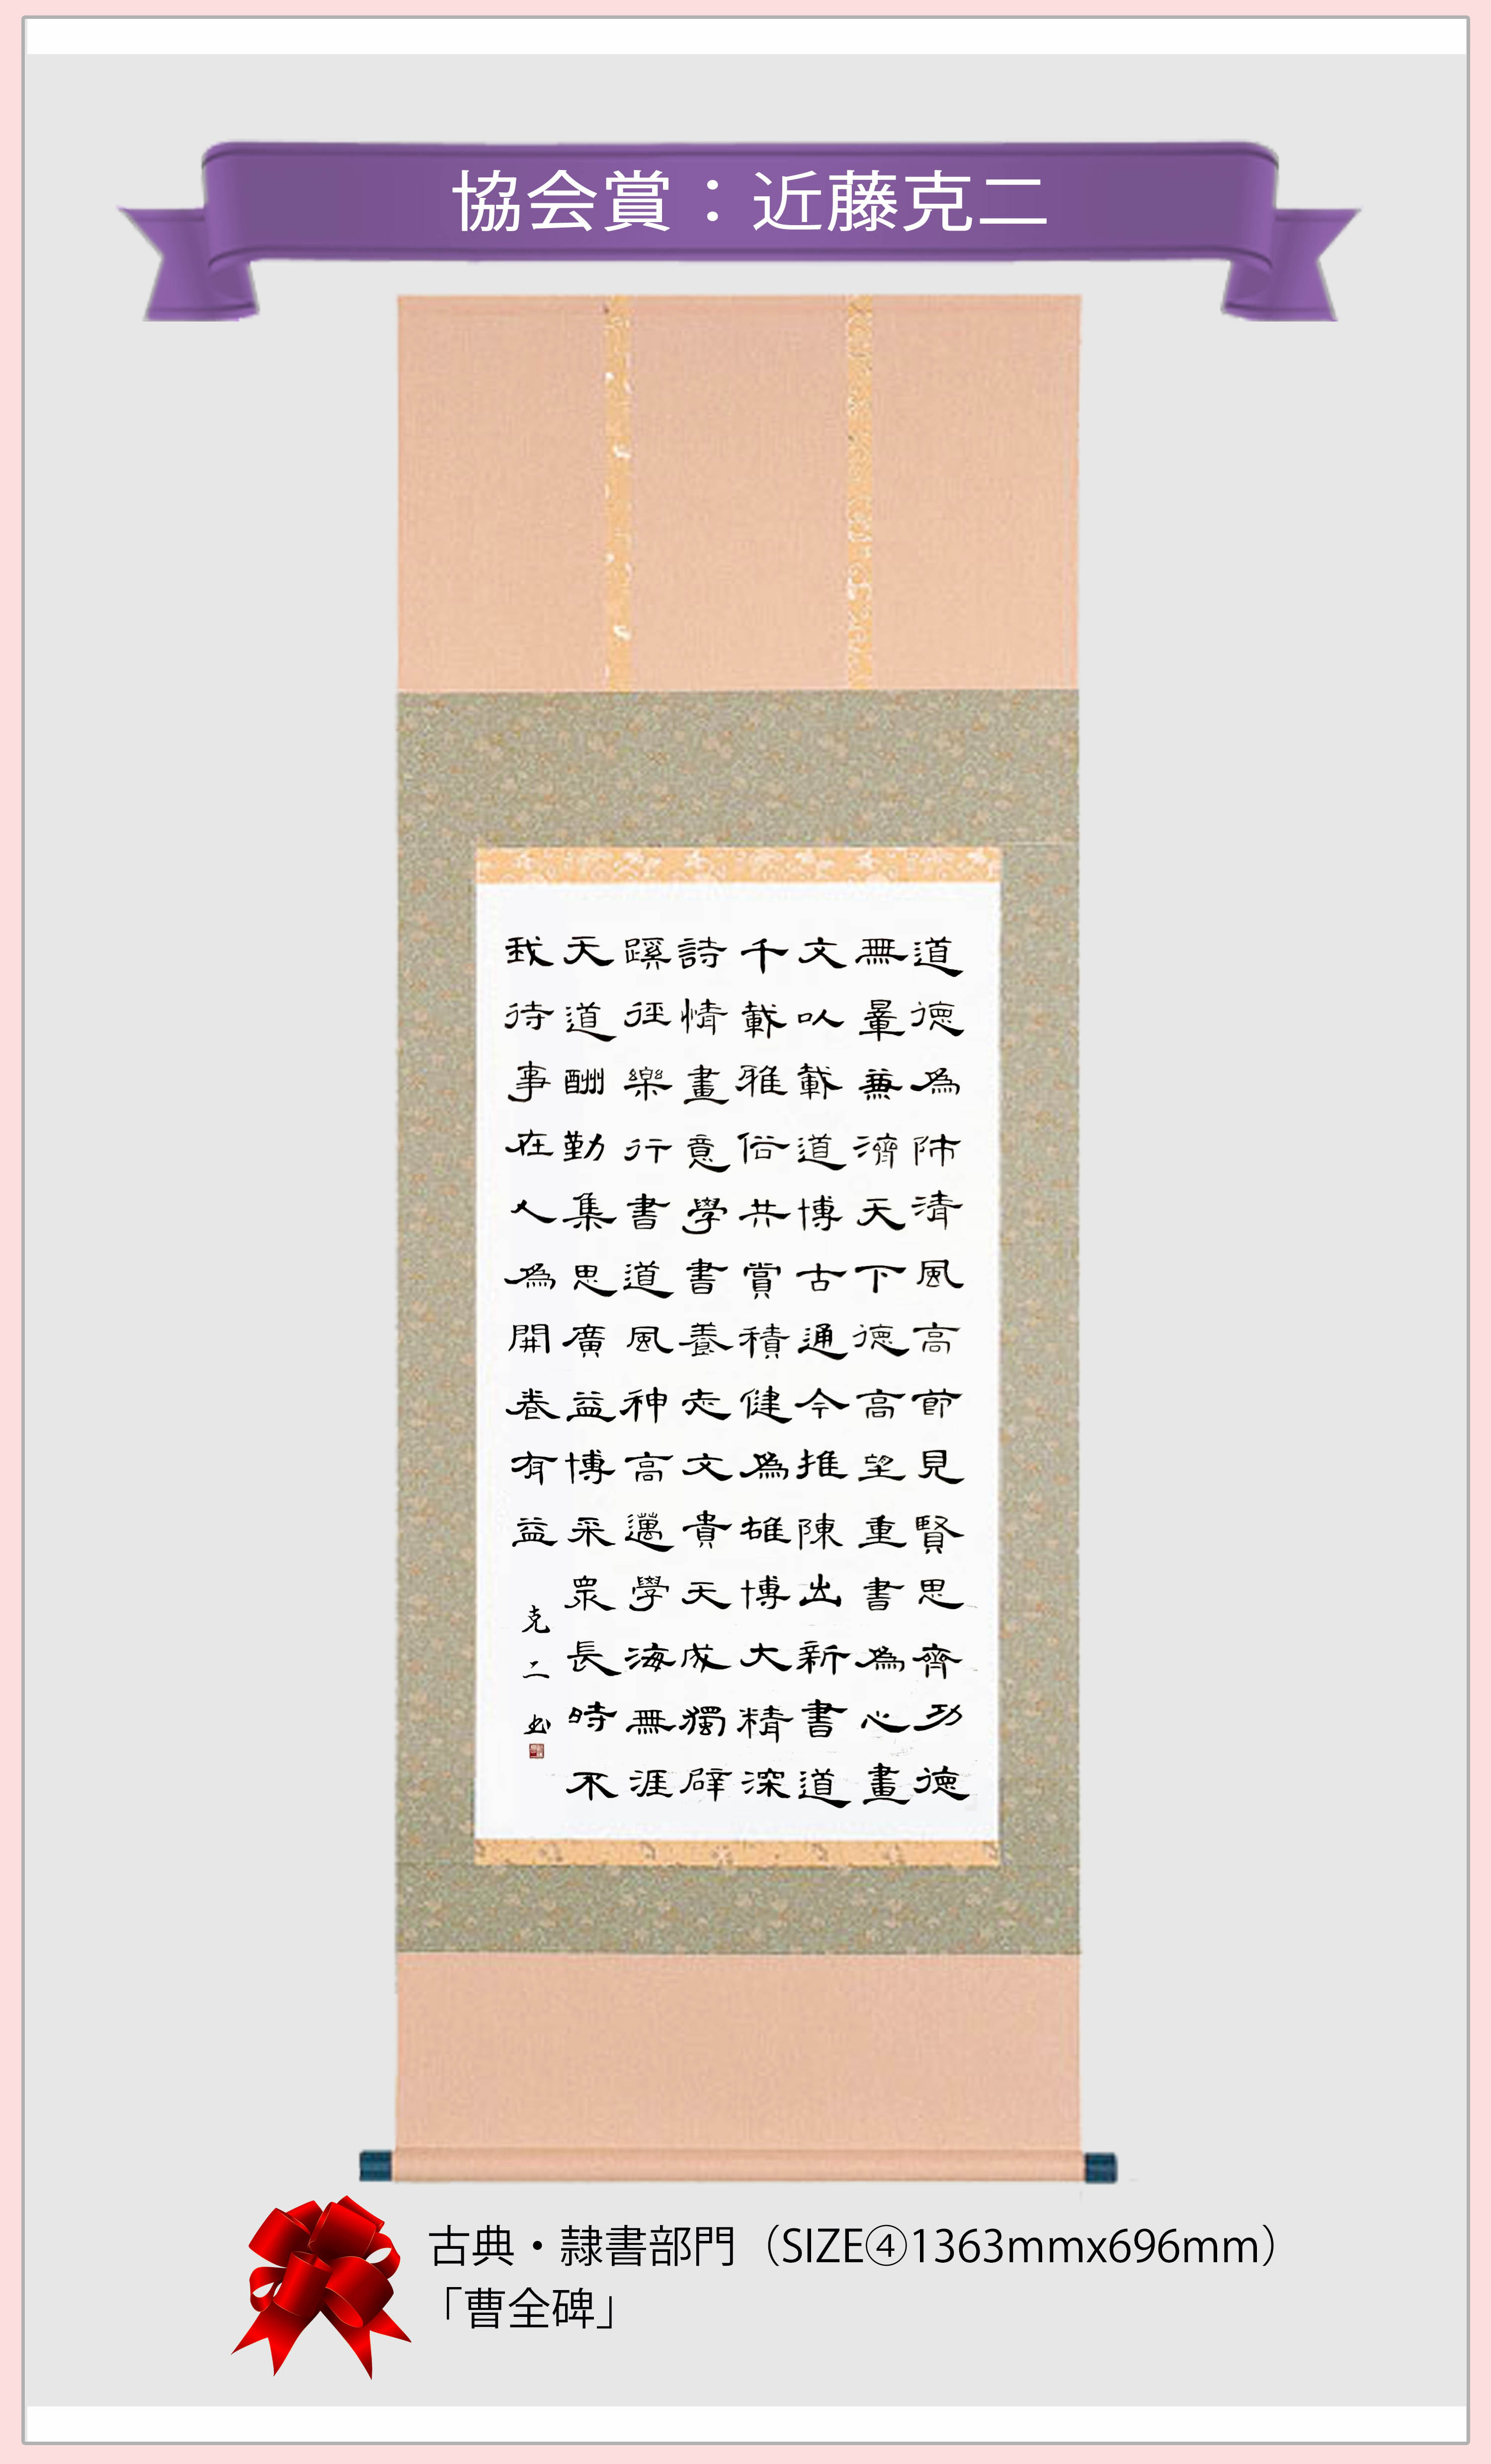 協会賞：近藤克二
道德為師清風高節見賢思齊功德
無量兼濟天下德高望重書為心畫
文以載道博古通今推陳出新書道
千載雅俗共賞積健為雄博大精深
詩情畫意學書養志文貴天成獨辟
蹊徑樂行書道風神高邁學海無涯
天道酬勤集思廣益博采眾長時不
我待事在人為開卷有益
克二書
古典・隷書部門（SIZE④1363mmx696mm）
「曹全碑」